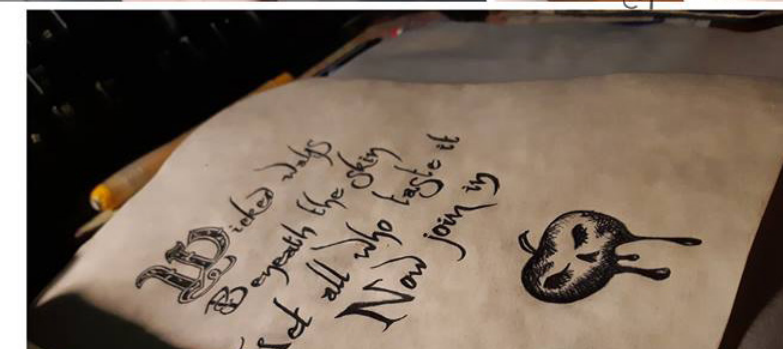 Wicked ways
Beneath the skin
Let all who taste it
Now join in